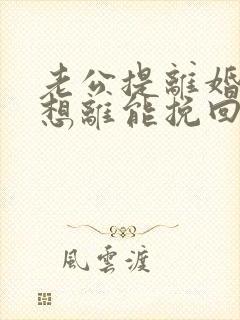 老公提離婚
想離能挽回
風雲渡